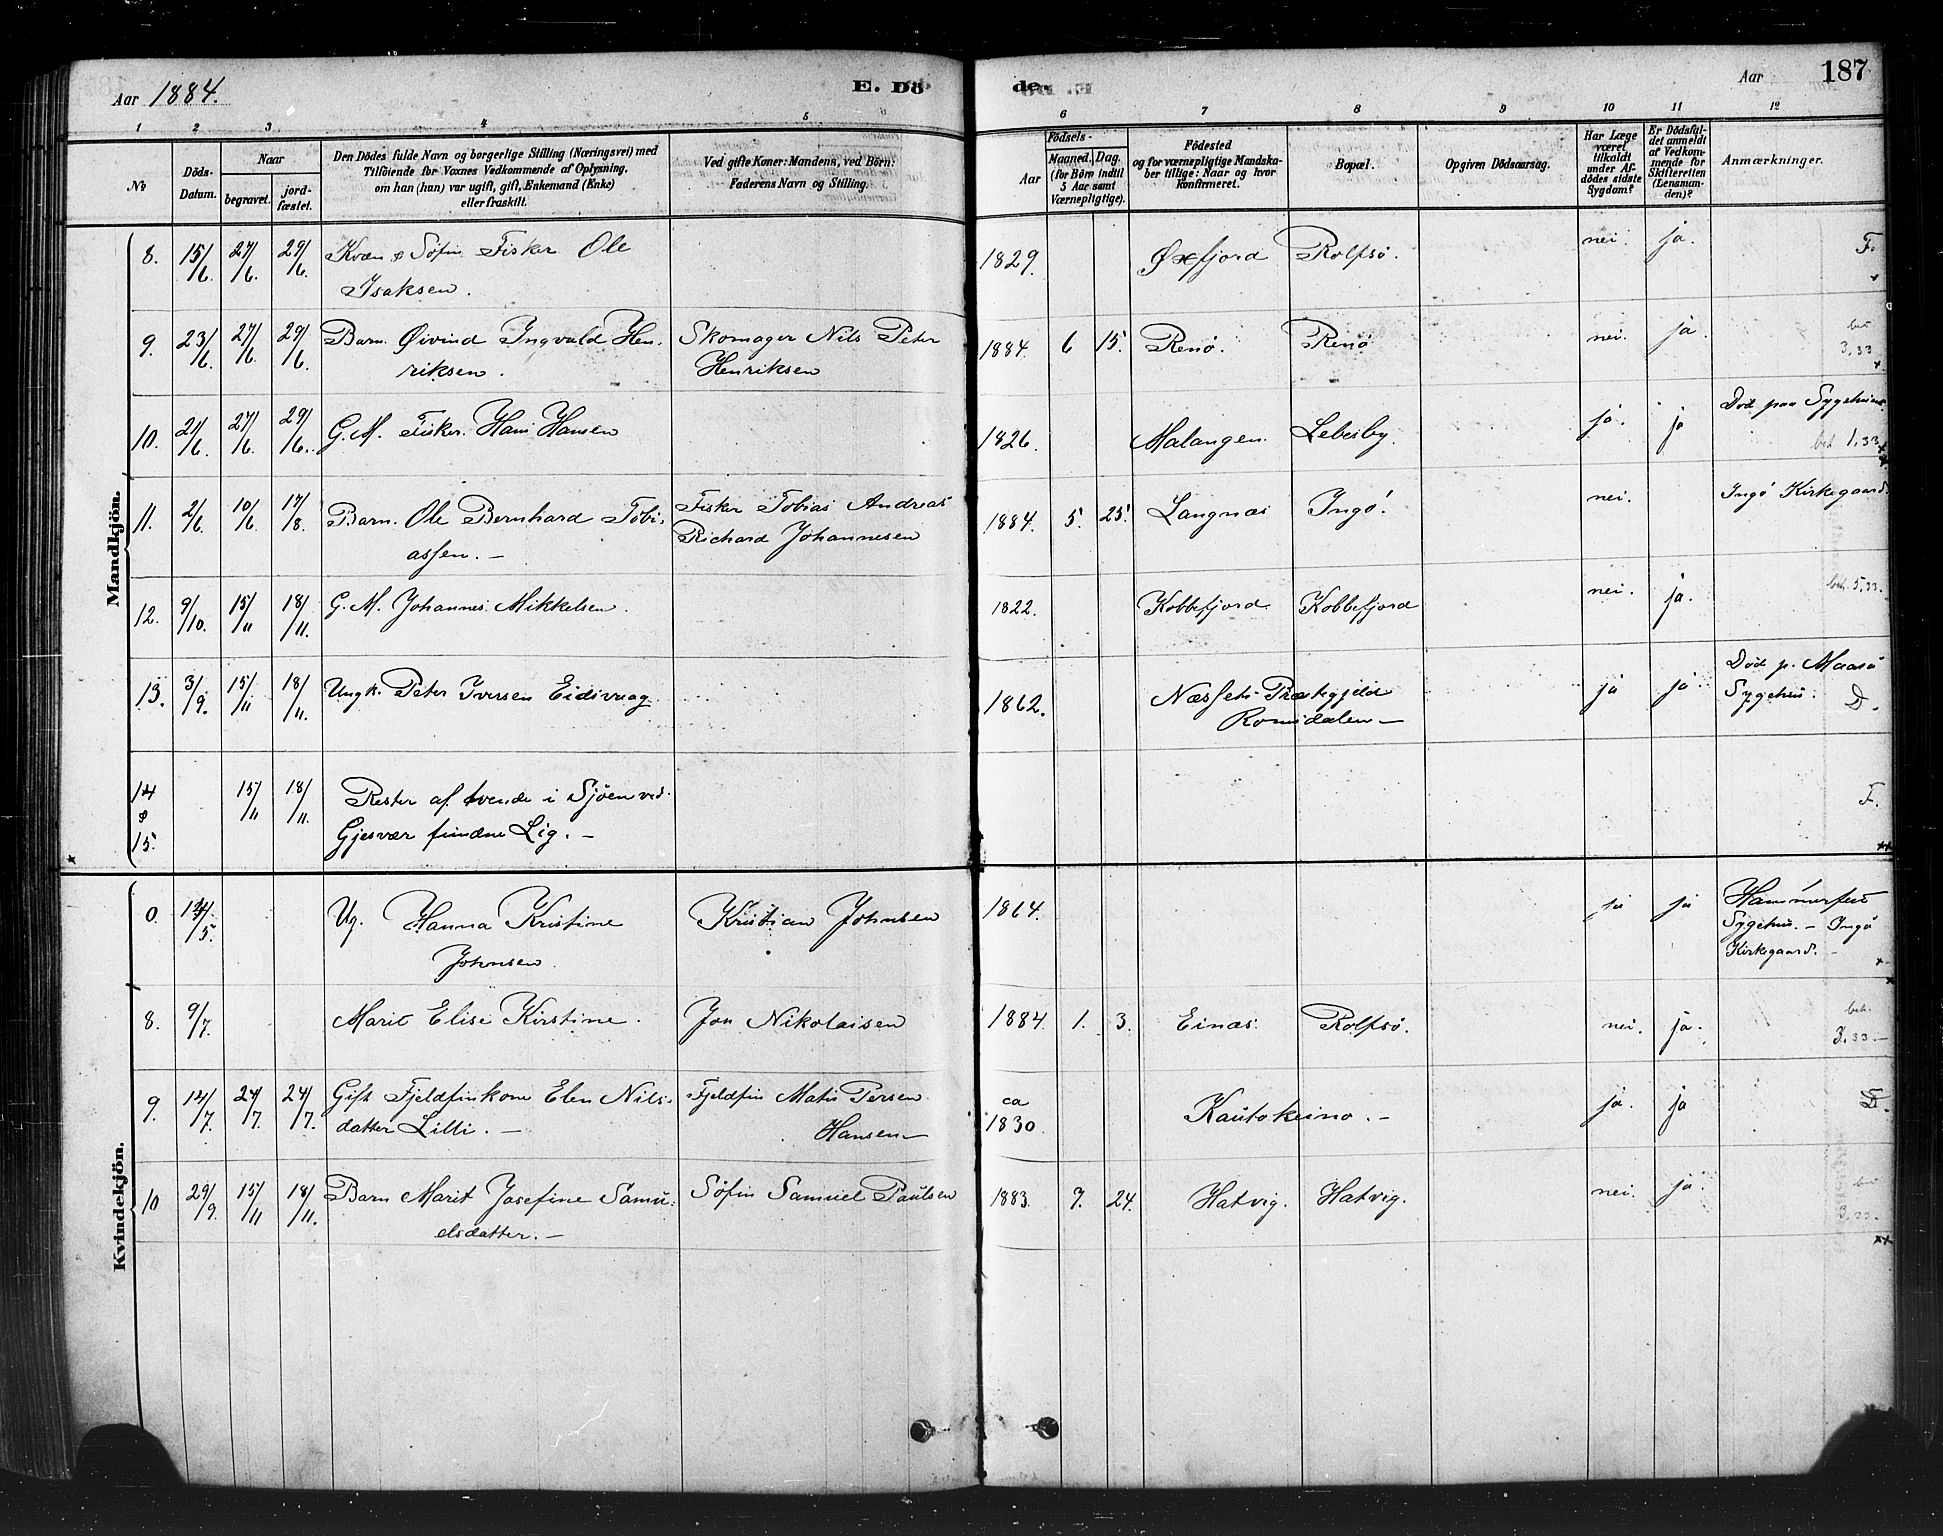 Aar 1884. E. Dö de. Aar 187
1 2 3 4 5 6 7 8 9 10 11 12
No
Döds-Datum.
Naar
begravet.
jord-fæstet.
Den Dödes fulde Navn og borgerlige Stilling (Næringsvei) med
Tilföiende for Voxnes Vedkommende af Oplysning,
om han (hun) var ugift, gift, Enkemand (Enke)
eller fraskilt.
Ved gifte Koner: Mandens, ved Börn:
Faderens Navn og Stilling.
Födsels-
Aar
Maaned. Dag.
(for Börn indtil
5 Aar samt
Værnepligtige).
Födested
og for værnepligtige Mandska-
ber tillige: Naar og hvor
konfirmeret.
Bopæl.
Opgiven Dödsaarsag.
Har Læge
været
tilkaldt
under Af-
dödes sidste
Sygdom?
Er Dödsfal-
det anmeldt
af Vedkom-
mende for
Skifteretten
(Lensman-
den)?
Anmærkninger.
Mandkjön.
8. 15/6 27/6. 29/6. Kvæn & Søfin Fisker Ole 1829. Øxfjord Rolfsö. nei. ja. F.
Isaksen.
9. 23/6. 27/6. 29/6. Barn. Øivind Ingvald Hen- Skomager Nils Peter 1884. 6 15. Renö. Renö nei. ja. bet 3,33
riksen. Henriksen
10. 21/6. 27/6. 29/6. G. M. Fisker. Hans Hansen 1826. Malangen. Lebesby. ja. ja Död paa Sygehuus.
bet 1,33
11. 2/6. 10/6. 17/8. Barn. Ole Bernhard Tobi- Fisker Tobias Andreas 1884. 5. 25. Langnæs Ingö. nei. Ingö Kirkegaard.
assen. — Richard Johannesen
12. 9/10. 15/11 18/11. G. M. Johannes Mikkelsen. 1822. Kobbefjord Kobbefjord nei. ja. bet. 5,33.
13. 3/9. 15/11 18/11. Ungk. Peter Iversen Eidsvaag. 1862. Næssets Præstegjeld ja ja Död p. Maasö
Romsdalen — Sygehus. D.
14 & 15. 15/11 18/11. Rester af tvende i Sjöen ved F.
Gjesvær fundne Lig. —
Kvindekjön.
0. 14/5. Ug. Hanna Kristine Kristian Johnsen 1864. ja ja Hammerfest
Johnsen. Sygehus. — Ingö
Kirkegaard. —
8. 9/7. Marit Elise Kirstine. Jon Nikolaisen 1884. 1. 3. Einæs. Rolfsö. nei. ja. bet.
3,33 —
9. 14/7. 24/7. 24/7. Gift Fjeldfinkone Elen Nils- Fjeldfin Mats Persen ca 1830. Kautokeino. — ja. ja D.
datter Lilli. — Hansen —
10 29/9. 15/11 18/11. Barn Marit Josefine Samu- Söfin Samuel Paulsen 1883. 9. 24. Hatvig. Hatvig. nei. ja. bet
elsdatter. — 3,33.